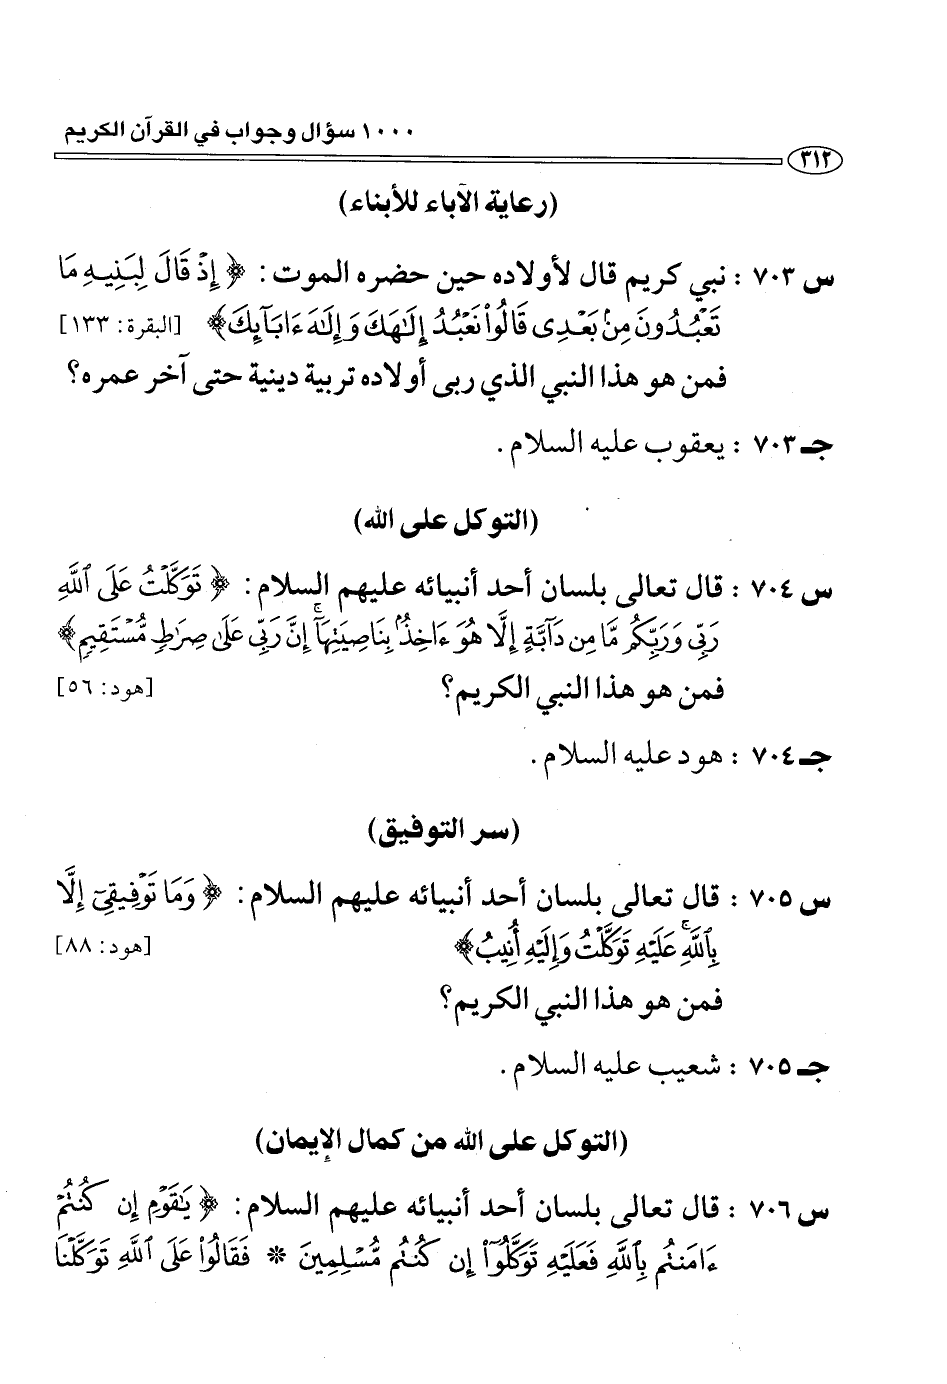 ١٠٠٠ سؤال وجواب في القرآن الكريم
٣١٢
(رعاية الآباء للأبناء)
س ٧٠٣ : نبي كريم قال لأولاده حين حضره الموت : ﴿ إِذْ قَالَ لِبَنِيهِ مَا
تَعْبُدُونَ مِنۢ بَعْدِى قَالُوا۟ نَعْبُدُ إِلَٰهَكَ وَإِلَٰهَ ءَابَآئِكَ ﴾ [البقرة: ١٣٣]
فمن هو هذا النبي الذي ربى أولاده تربية دينية حتى آخر عمره؟
جـ ٧٠٣ : يعقوب عليه السلام .
(التوكل على الله)
س ٧٠٤ : قال تعالى بلسان أحد أنبيائه عليهم السلام : ﴿ تَوَكَّلْتُ عَلَى ٱللَّهِ
رَبِّى وَرَبِّكُم مَّا مِن دَآبَّةٍ إِلَّا هُوَ ءَاخِذٌۢ بِنَاصِيَتِهَآ ۚ إِنَّ رَبِّى عَلَىٰ صِرَٰطٍ مُّسْتَقِيمٍ ﴾
فمن هو هذا النبي الكريم؟ [هود: ٥٦]
جـ ٧٠٤ : هود عليه السلام .
(سر التوفيق)
س ٧٠٥ : قال تعالى بلسان أحد أنبيائه عليهم السلام : ﴿ وَمَا تَوْفِيقِىٓ إِلَّا
بِٱللَّهِ ۚ عَلَيْهِ تَوَكَّلْتُ وَإِلَيْهِ أُنِيبُ ﴾ [هود: ٨٨]
فمن هو هذا النبي الكريم؟
جـ ٧٠٥ : شعيب عليه السلام .
(التوكل على الله من كمال الإيمان)
س ٧٠٦ : قال تعالى بلسان أحد أنبيائه عليهم السلام : ﴿ يَٰقَوْمِ إِن كُنتُمْ
ءَامَنتُم بِٱللَّهِ فَعَلَيْهِ تَوَكَّلُوٓا۟ إِن كُنتُم مُّسْلِمِينَ * فَقَالُوا۟ عَلَى ٱللَّهِ تَوَكَّلْنَا